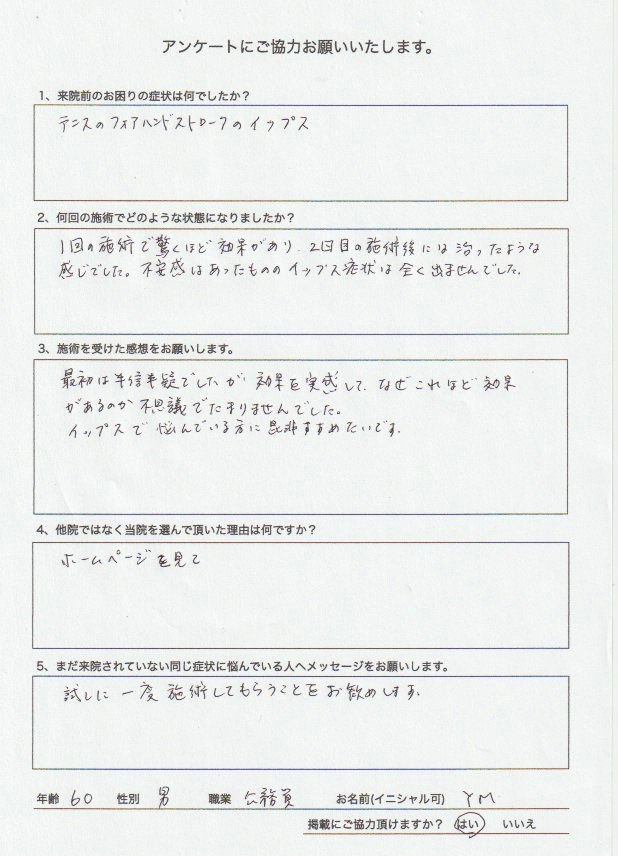 アンケートにご協力お願いいたします。
1、来院前のお困りの症状は何でしたか？
テニスのフォアハンドストロークのイップス
2、何回の施術でどのような状態になりましたか？
1回の施術で驚くほど効果があり、2回目の施術後には治ったような
感じでした。不安感はあったもののイップス症状は全く出ませんでした。
3、施術を受けた感想をお願いします。
最初は半信半疑でしたが効果を実感して、なぜこれほど効果
があるのか不思議でたまりませんでした。
イップスで悩んでいる方に是非すすめたいです。
4、他院ではなく当院を選んで頂いた理由は何ですか？
ホームページを見て
5、まだ来院されていない同じ症状に悩んでいる人へメッセージをお願いします。
試しに一度施術してもらうことをお勧めします。
年齢 60 性別 男 職業 公務員 お名前(イニシャル可) YM
掲載にご協力頂けますか？ はい いいえ